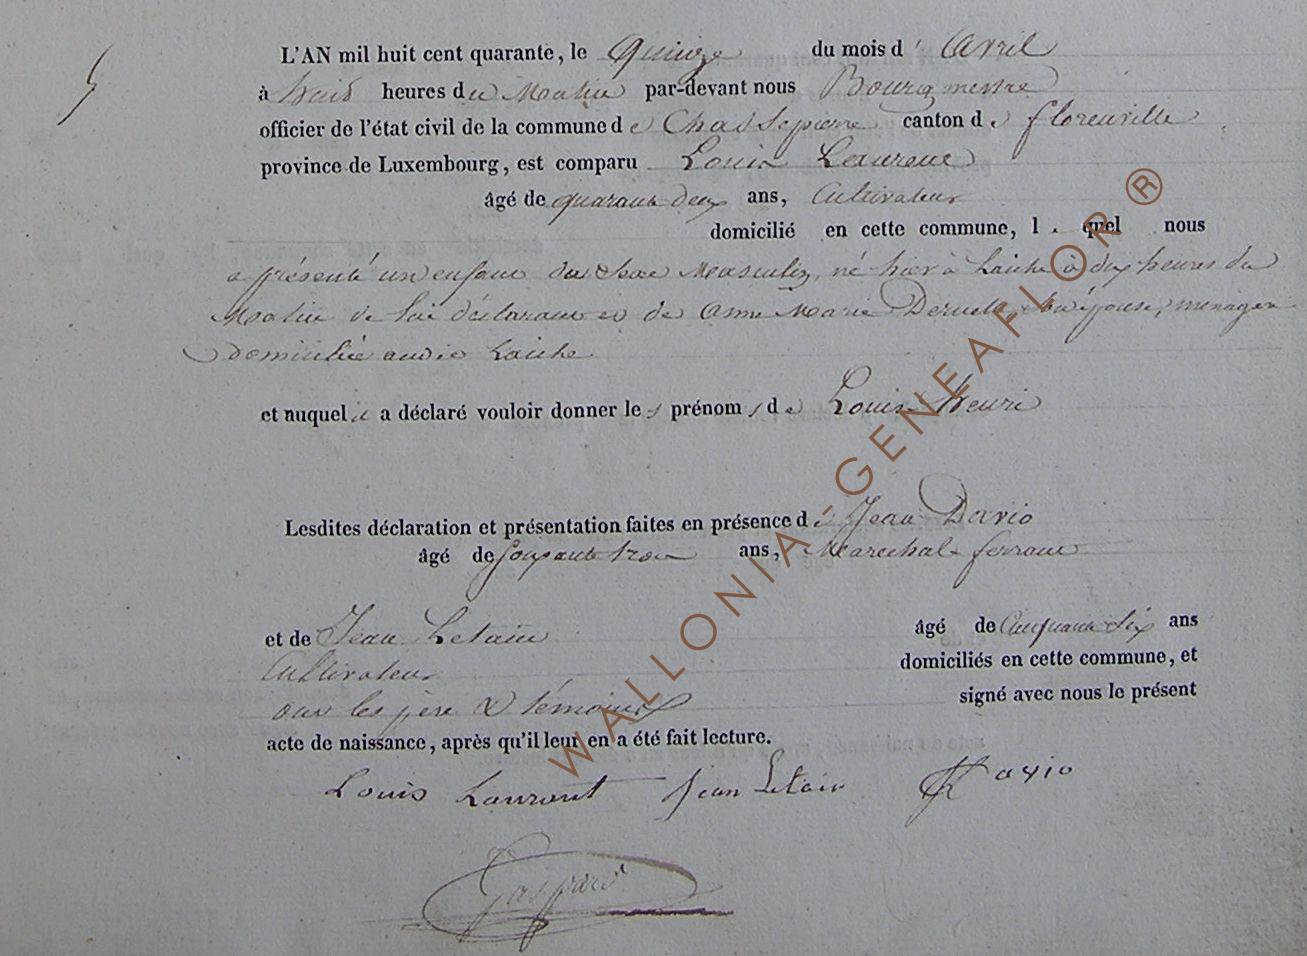 5
L'AN mil huit cent quarante, le Quinze du mois d' Avril
à huit heures du Matin par-devant nous Bourgmestre
officier de l'état civil de la commune de Chassepierre canton de florenville
province de Luxembourg, est comparu Louis Laurent
âgé de quarante deux ans, Cultivateur
domicilié en cette commune, l quel nous
a présenté un enfant du sexe Masculin, né hier à Laiche à dix heures du
Matin de lui déclarant et de Anne Marie son épouse, ménagère
domiciliée audit Laiche
et auquel il a déclaré vouloir donner les prénoms de Louis Henri
Lesdites déclaration et présentation faites en présence de Jean Davio
âgé de soixante trois ans, Marechal ferrant
et de Jean Letain âgé de Cinquante Six ans
Cultivateur domiciliés en cette commune, et
ont les père & témoins signé avec nous le présent
acte de naissance, après qu'il leur en a été fait lecture.
Louis Laurent Jean Letain Davio
Gaspard
WALLONIA-GENEAFLOR ®